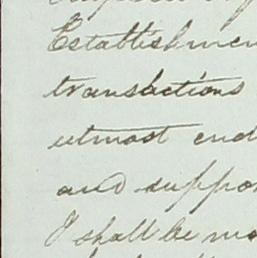 Establishmen
transactions
utmost end
and suppo
I shall be mo